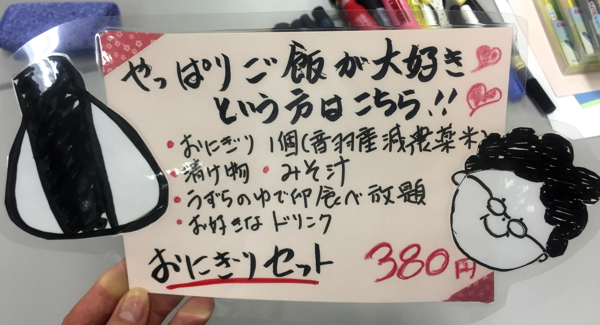 やっぱりご飯が大好き
という方はこちら!!
・おにぎり 1個(音羽産減農薬米)
・漬け物 ・みそ汁
・うずらのゆで卵食べ放題
・お好きなドリンク
おにぎりセット 380円